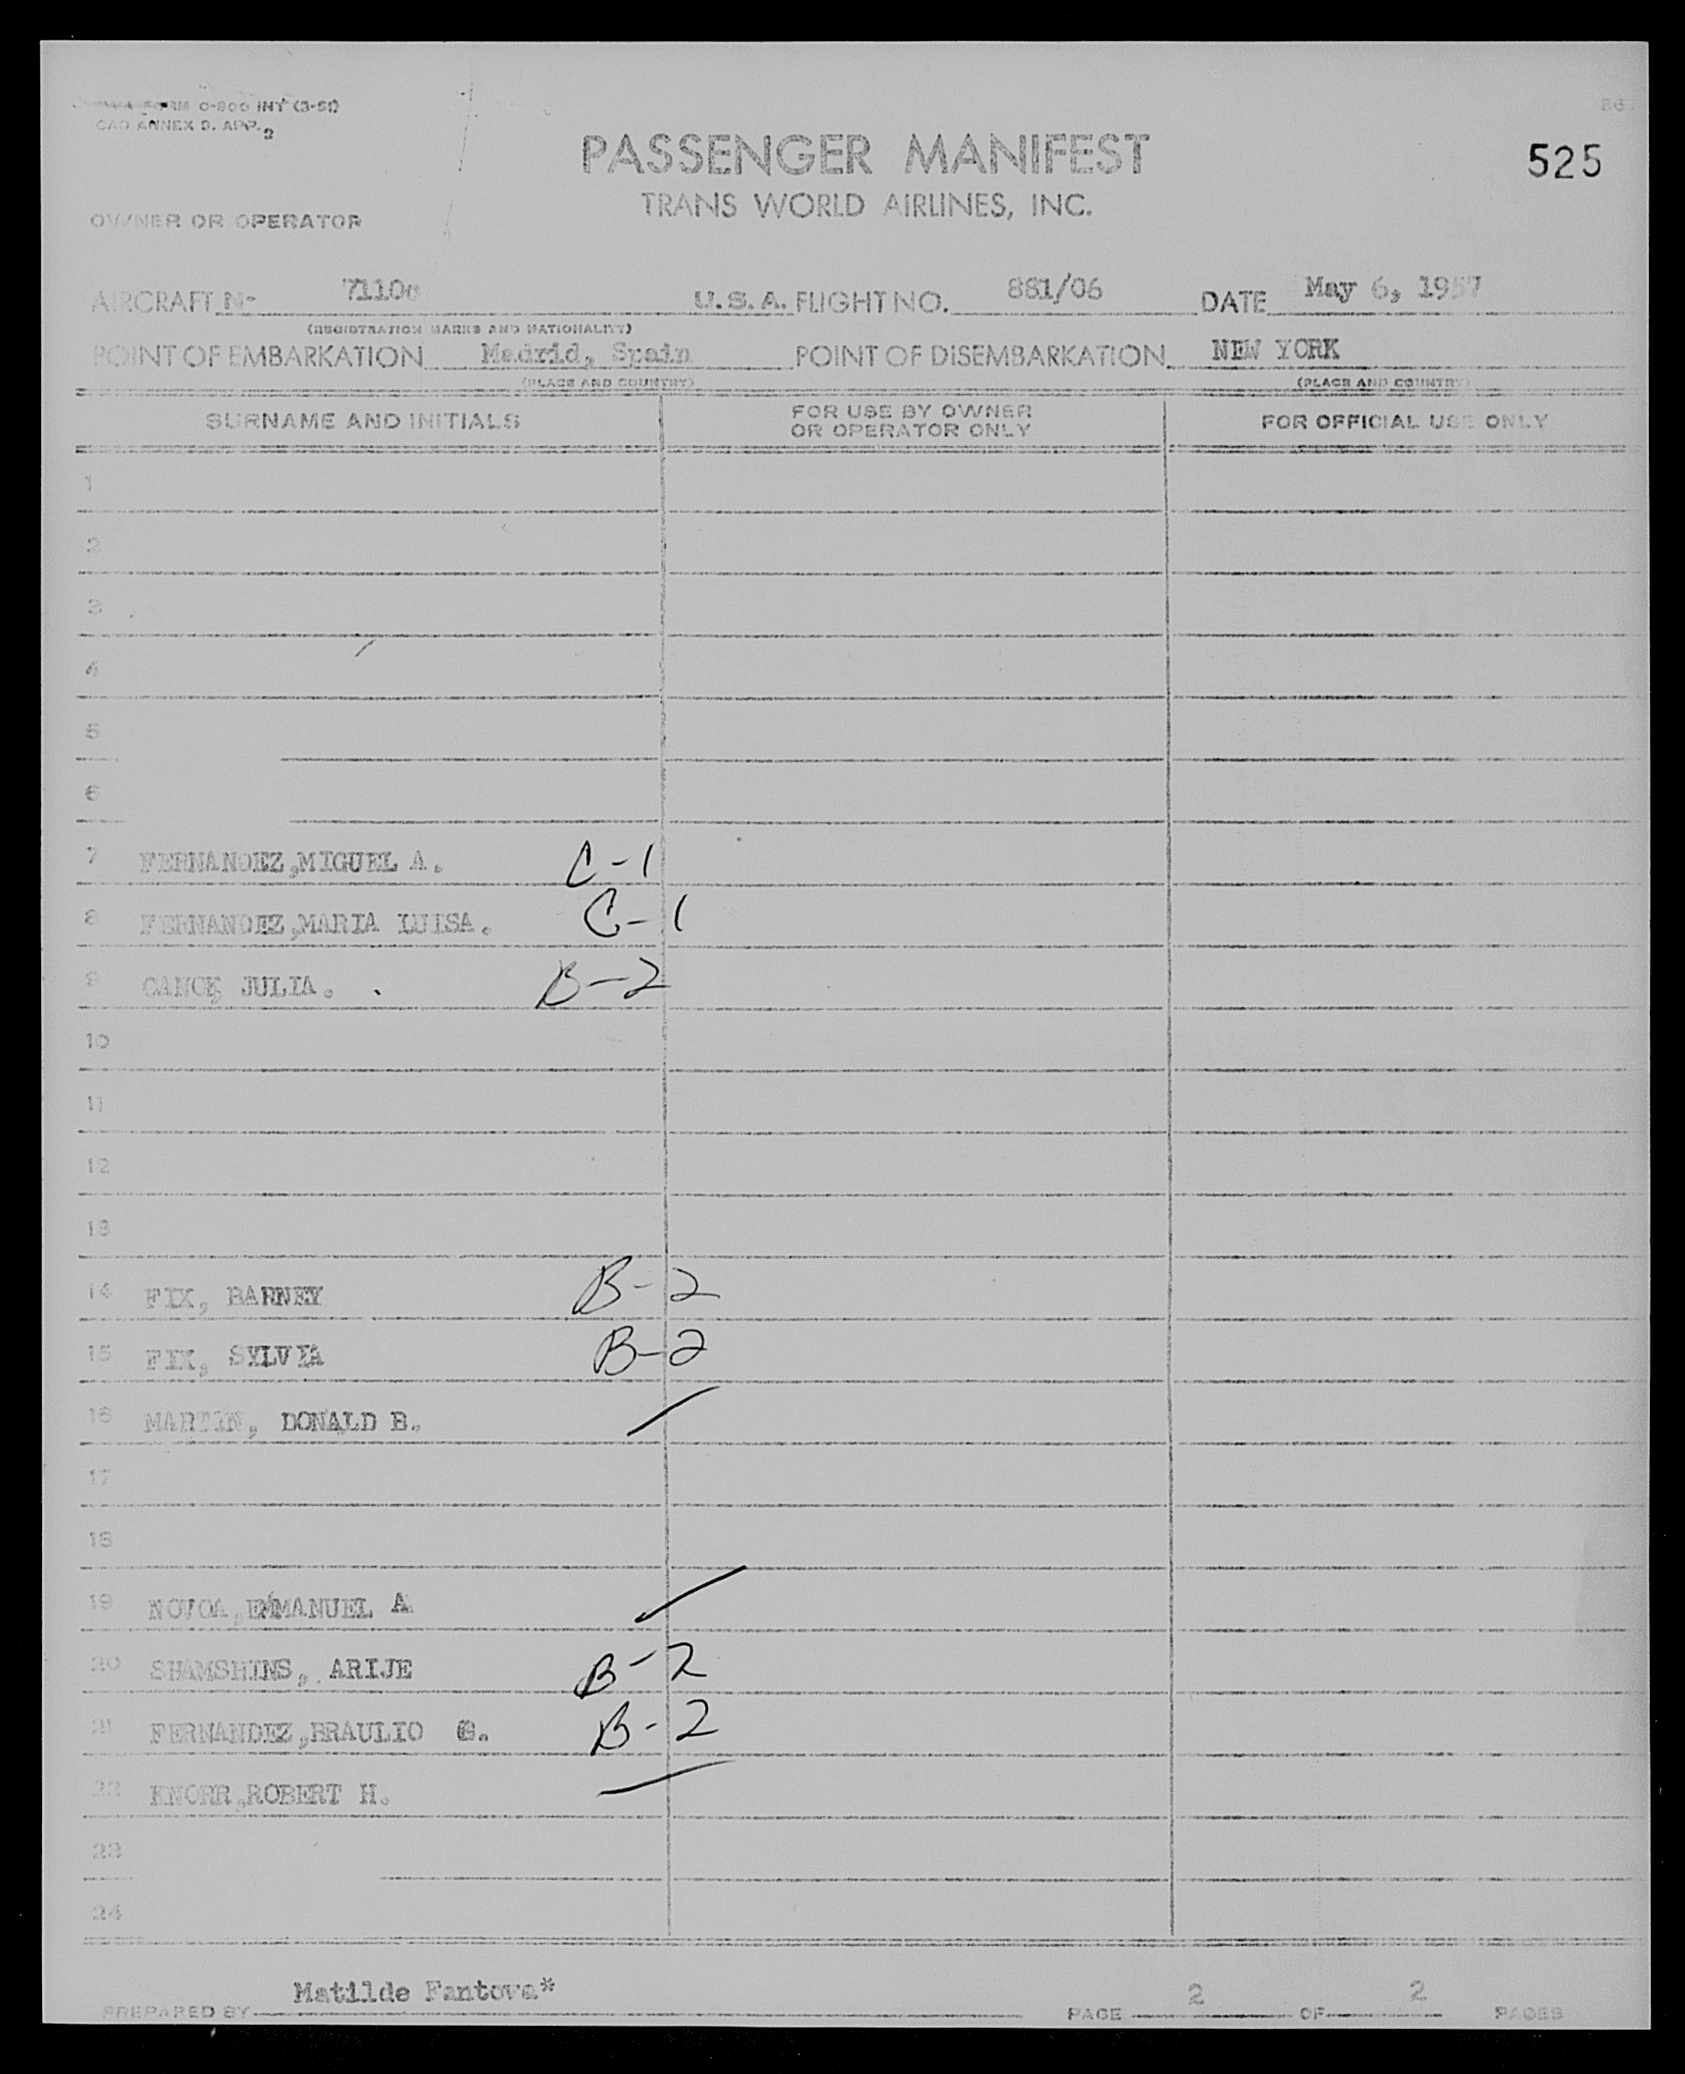 FORM 0-800 INT (3-51)
CAO ANNEX 9. APP. 2
PASSENGER MANIFEST
525
TRANS WORLD AIRLINES, INC.
OWNER OR OPERATOR
AIRCRAFT No 7110c U.S.A. FLIGHT NO. 881/06 DATE May 6, 1957
(REGISTRATION MARKS AND NATIONALITY)
POINT OF EMBARKATION Madrid, Spain POINT OF DISEMBARKATION NEW YORK
(PLACE AND COUNTRY) (PLACE AND COUNTRY)
SURNAME AND INITIALS FOR USE BY OWNER OR OPERATOR ONLY FOR OFFICIAL USE ONLY
1
2
3
4
5
6
7 FERNANDEZ,MIGUEL A. C-1
8 FERNANDEZ,MARIA LUISA. C-1
9 JULIA. B-2
10
11
12
13
14 FIX, BARNEY B-2
15 FIX, SYLVIA B-2
16 MARTIN, DONALD B.
17
18
19 NOVOA,EMMANUEL A
20 SHAMSHINS, ARIJE B-2
21 FERNANDEZ,BRAULIO B-2
22 KNORR,ROBERT H.
23
24
PREPARED BY Matilde Fantova* PAGE 2 OF 2 PAGES